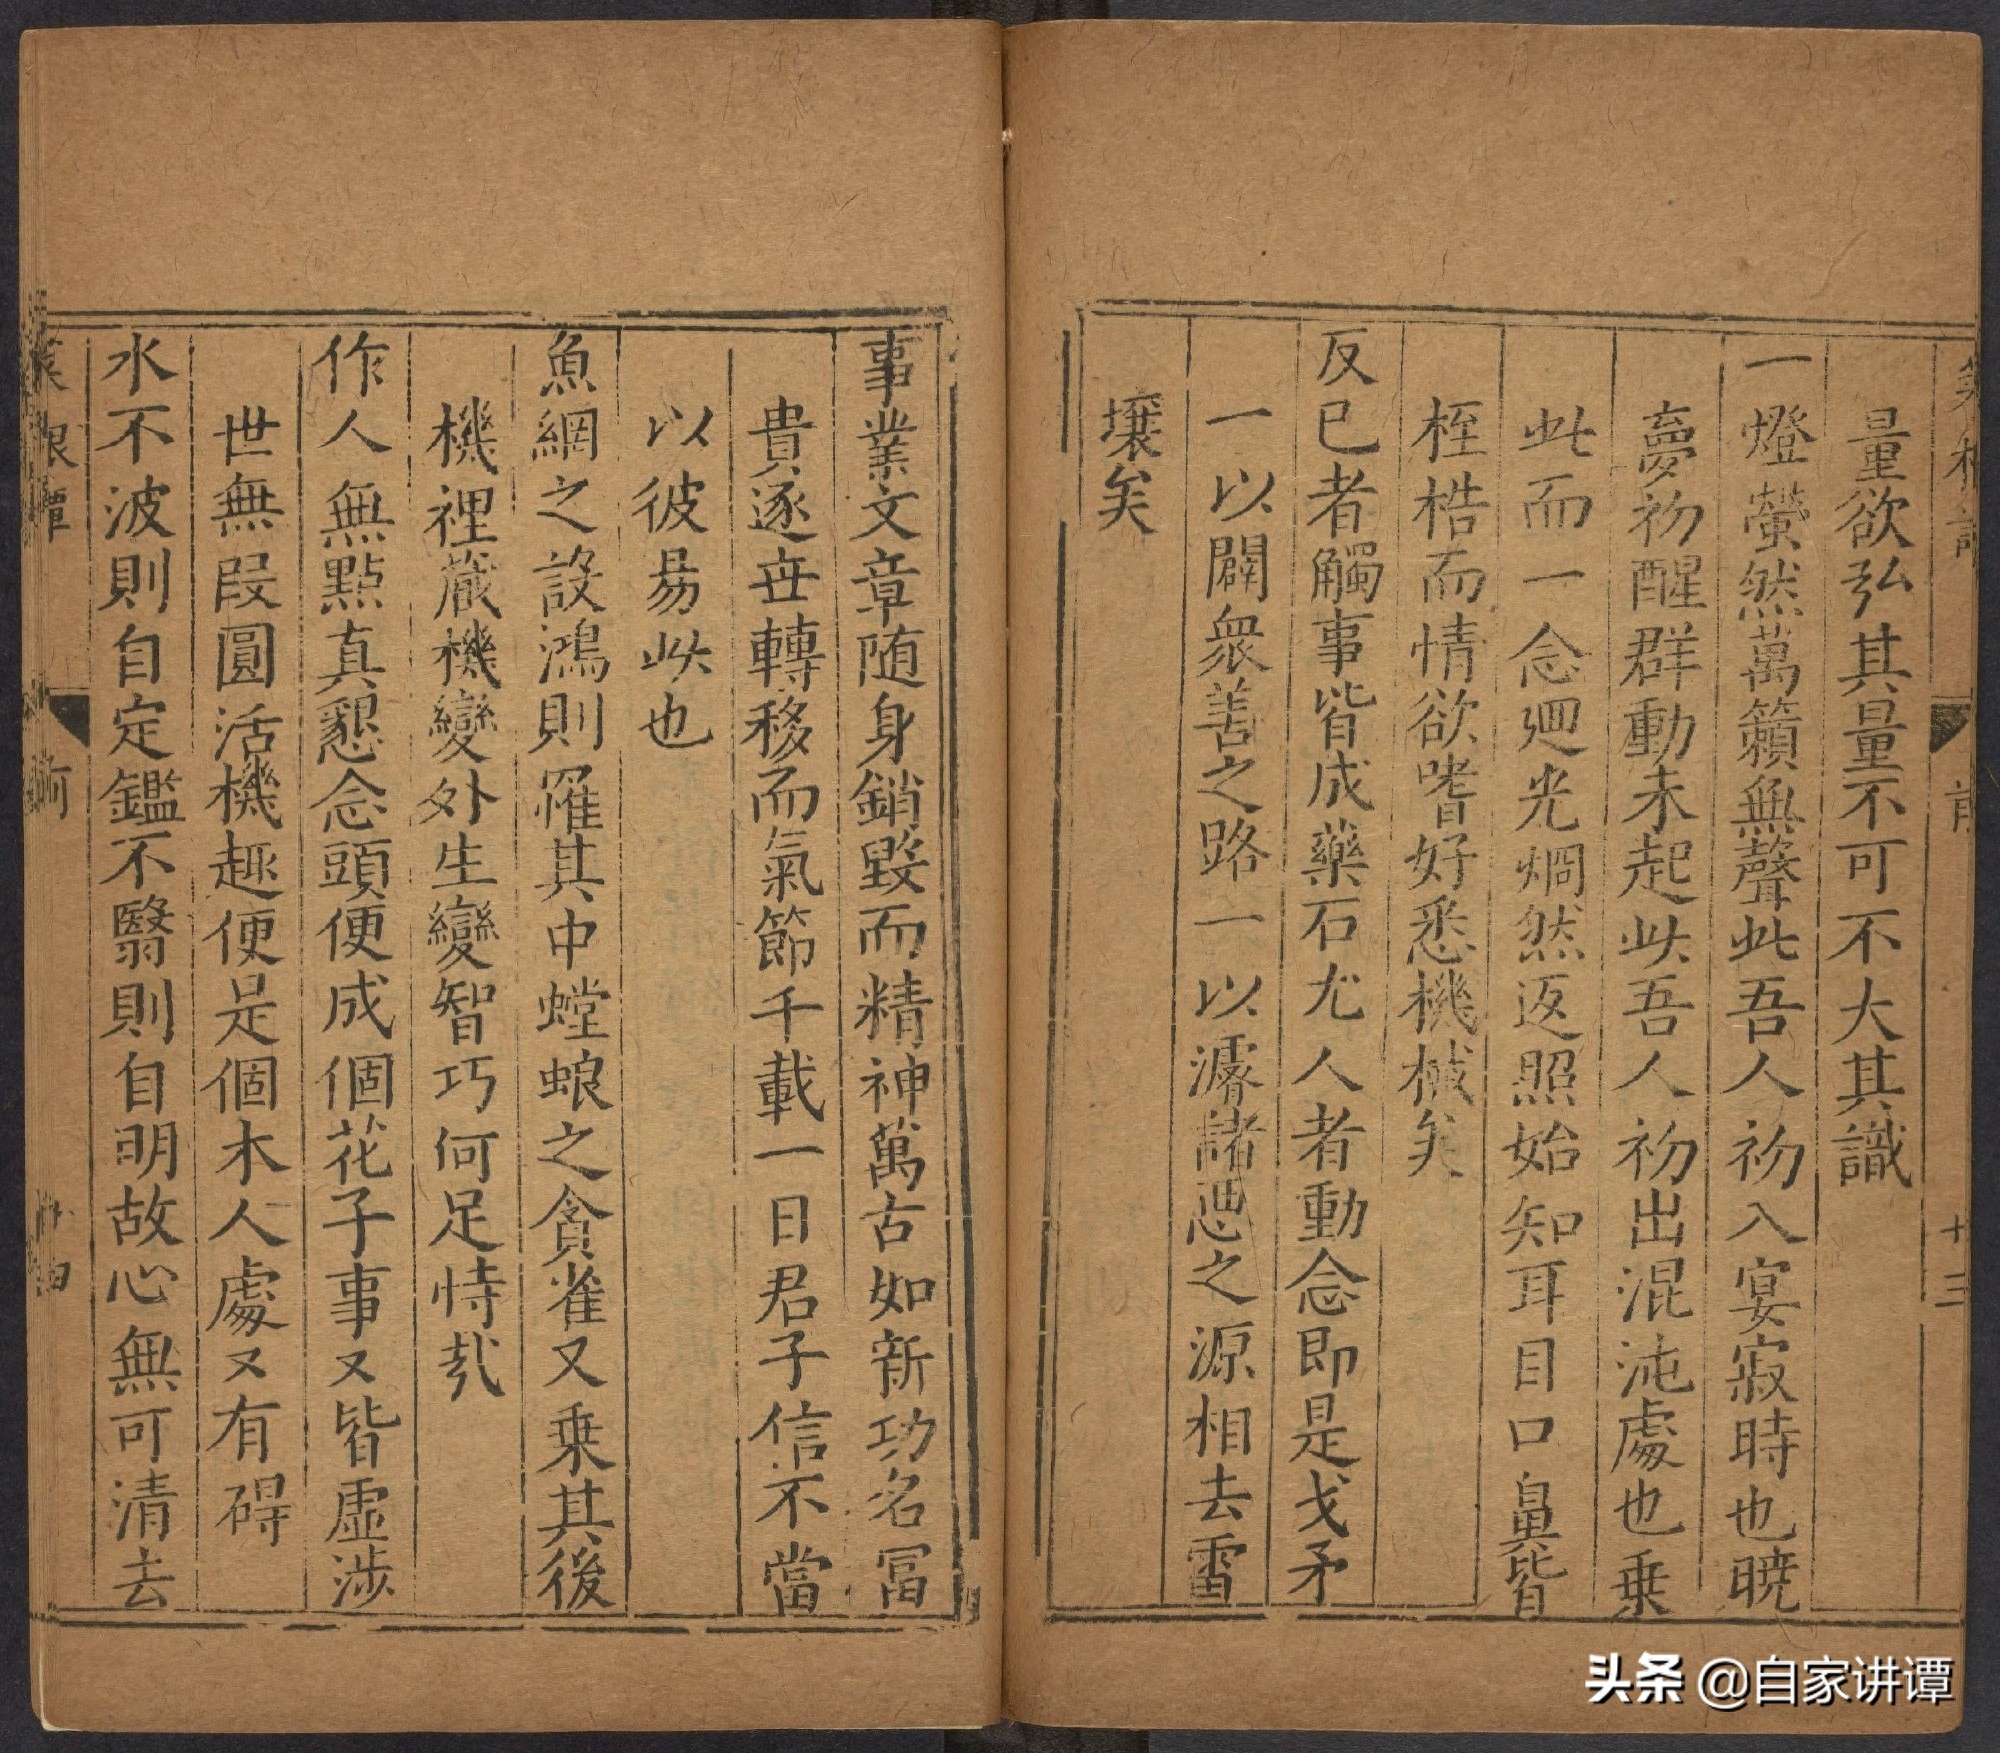 量欲弘其量不可不大其識
一燈螢然萬籟無聲此吾人初入宴寂時也曉
夢初醒群動未起此吾人初出混沌處也乗
此而一念廻光烱然返照始知耳目口鼻皆
桎梏而情欲嗜好悉機械矣
反已者觸事皆成藥石尤人者動念即是戈矛
一以闢衆善之路一以濬諸惡之源相去霄
壤矣
十三
事業文章随身銷毀而精神萬古如新功名冨
貴逐世轉移而氣節千載一日君子信不當
以彼易此也
魚網之設鴻則罹其中螳蜋之貪雀又乗其後
機裡藏機變外生變智巧何足恃哉
作人無點真懇念頭便成個花子事又皆虚涉
世無叚圓活機趣便是個木人處又有碍
水不波則自定鑑不翳則自明故心無可清去
頭条 @自家讲谭